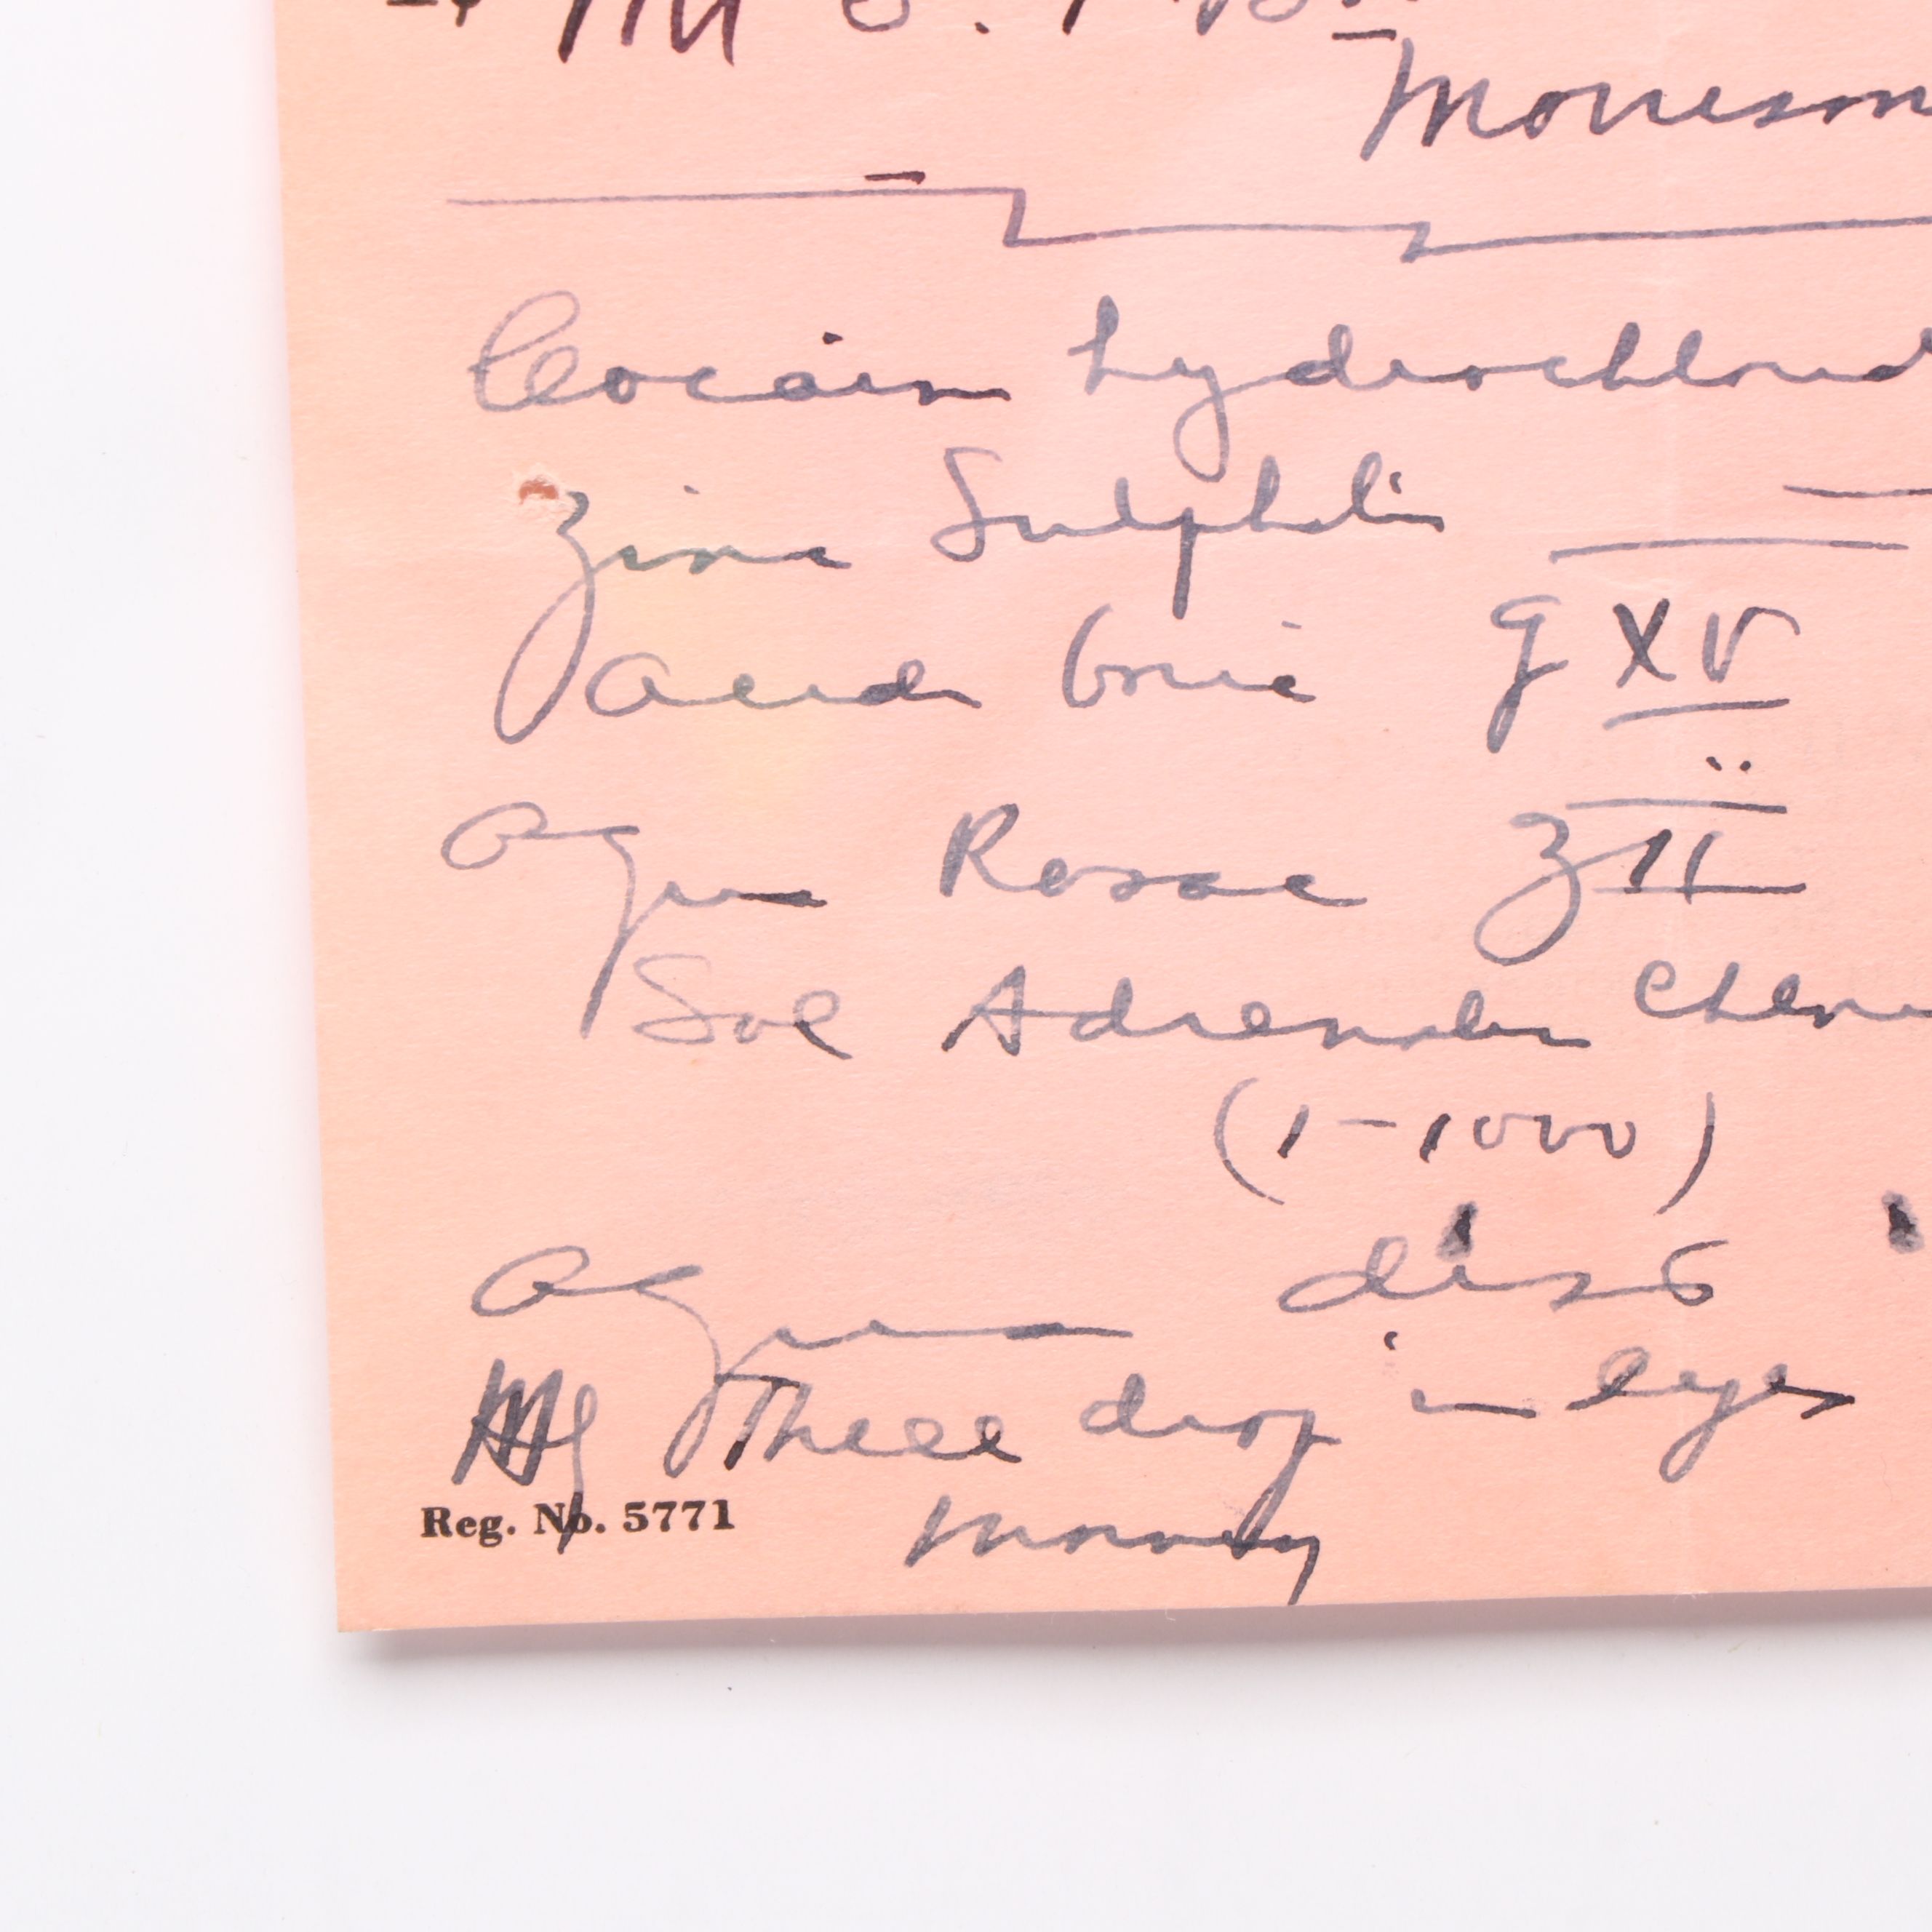 Cocain hydrochlorid
Zinc Sulphate
Acid boric g XV
Aqua Rosae ʒ II
Sol Adrenalin Chlori
(1-1000)
Aqua dist
Three drop in eyes
morning
Reg. No. 5771